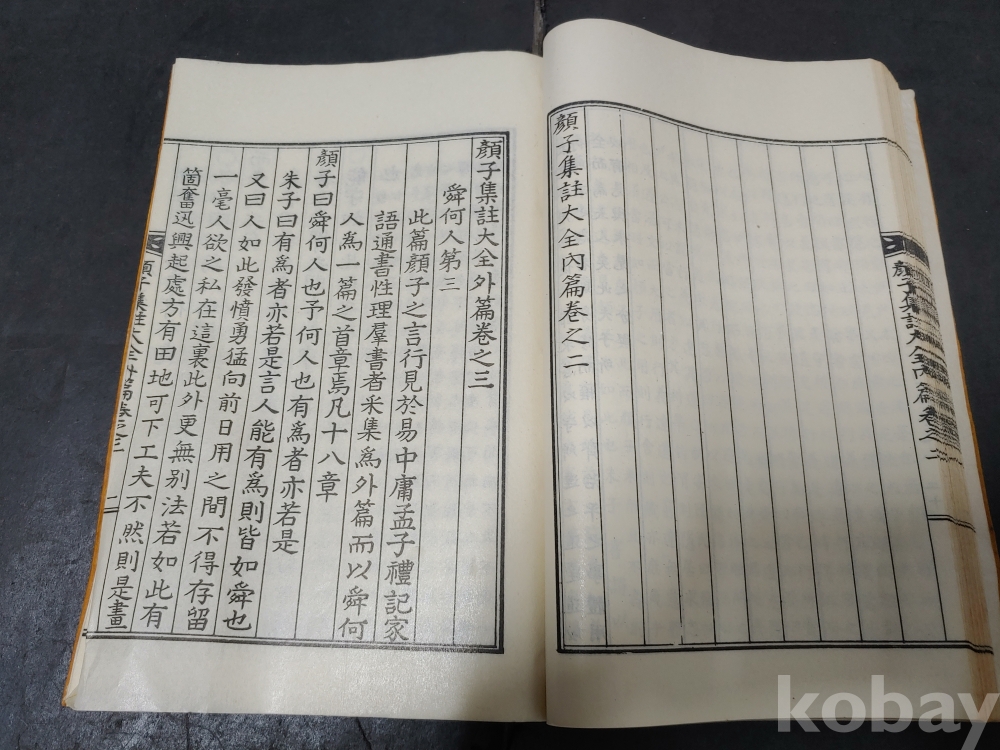 顔子集註大全內篇卷之二
顔子集註大全內篇 卷之二
顔子集註大全外篇卷之三
舜何人第三
此篇顔子之言行見於易中庸孟子禮記家
語通書性理羣書者采集為外篇而以舜何
人為一篇之首章焉凡十八章
顔子曰舜何人也予何人也有為者亦若是
朱子曰有為者亦若是言人能有為則皆如舜也
又曰人如此發憤勇猛向前日用之間不得存留
一毫人欲之私在這裏此外更無別法若如此有
箇奮迅興起處方有田地可下工夫不然則是畫
顔子集註大全外篇卷之三 一
kobay